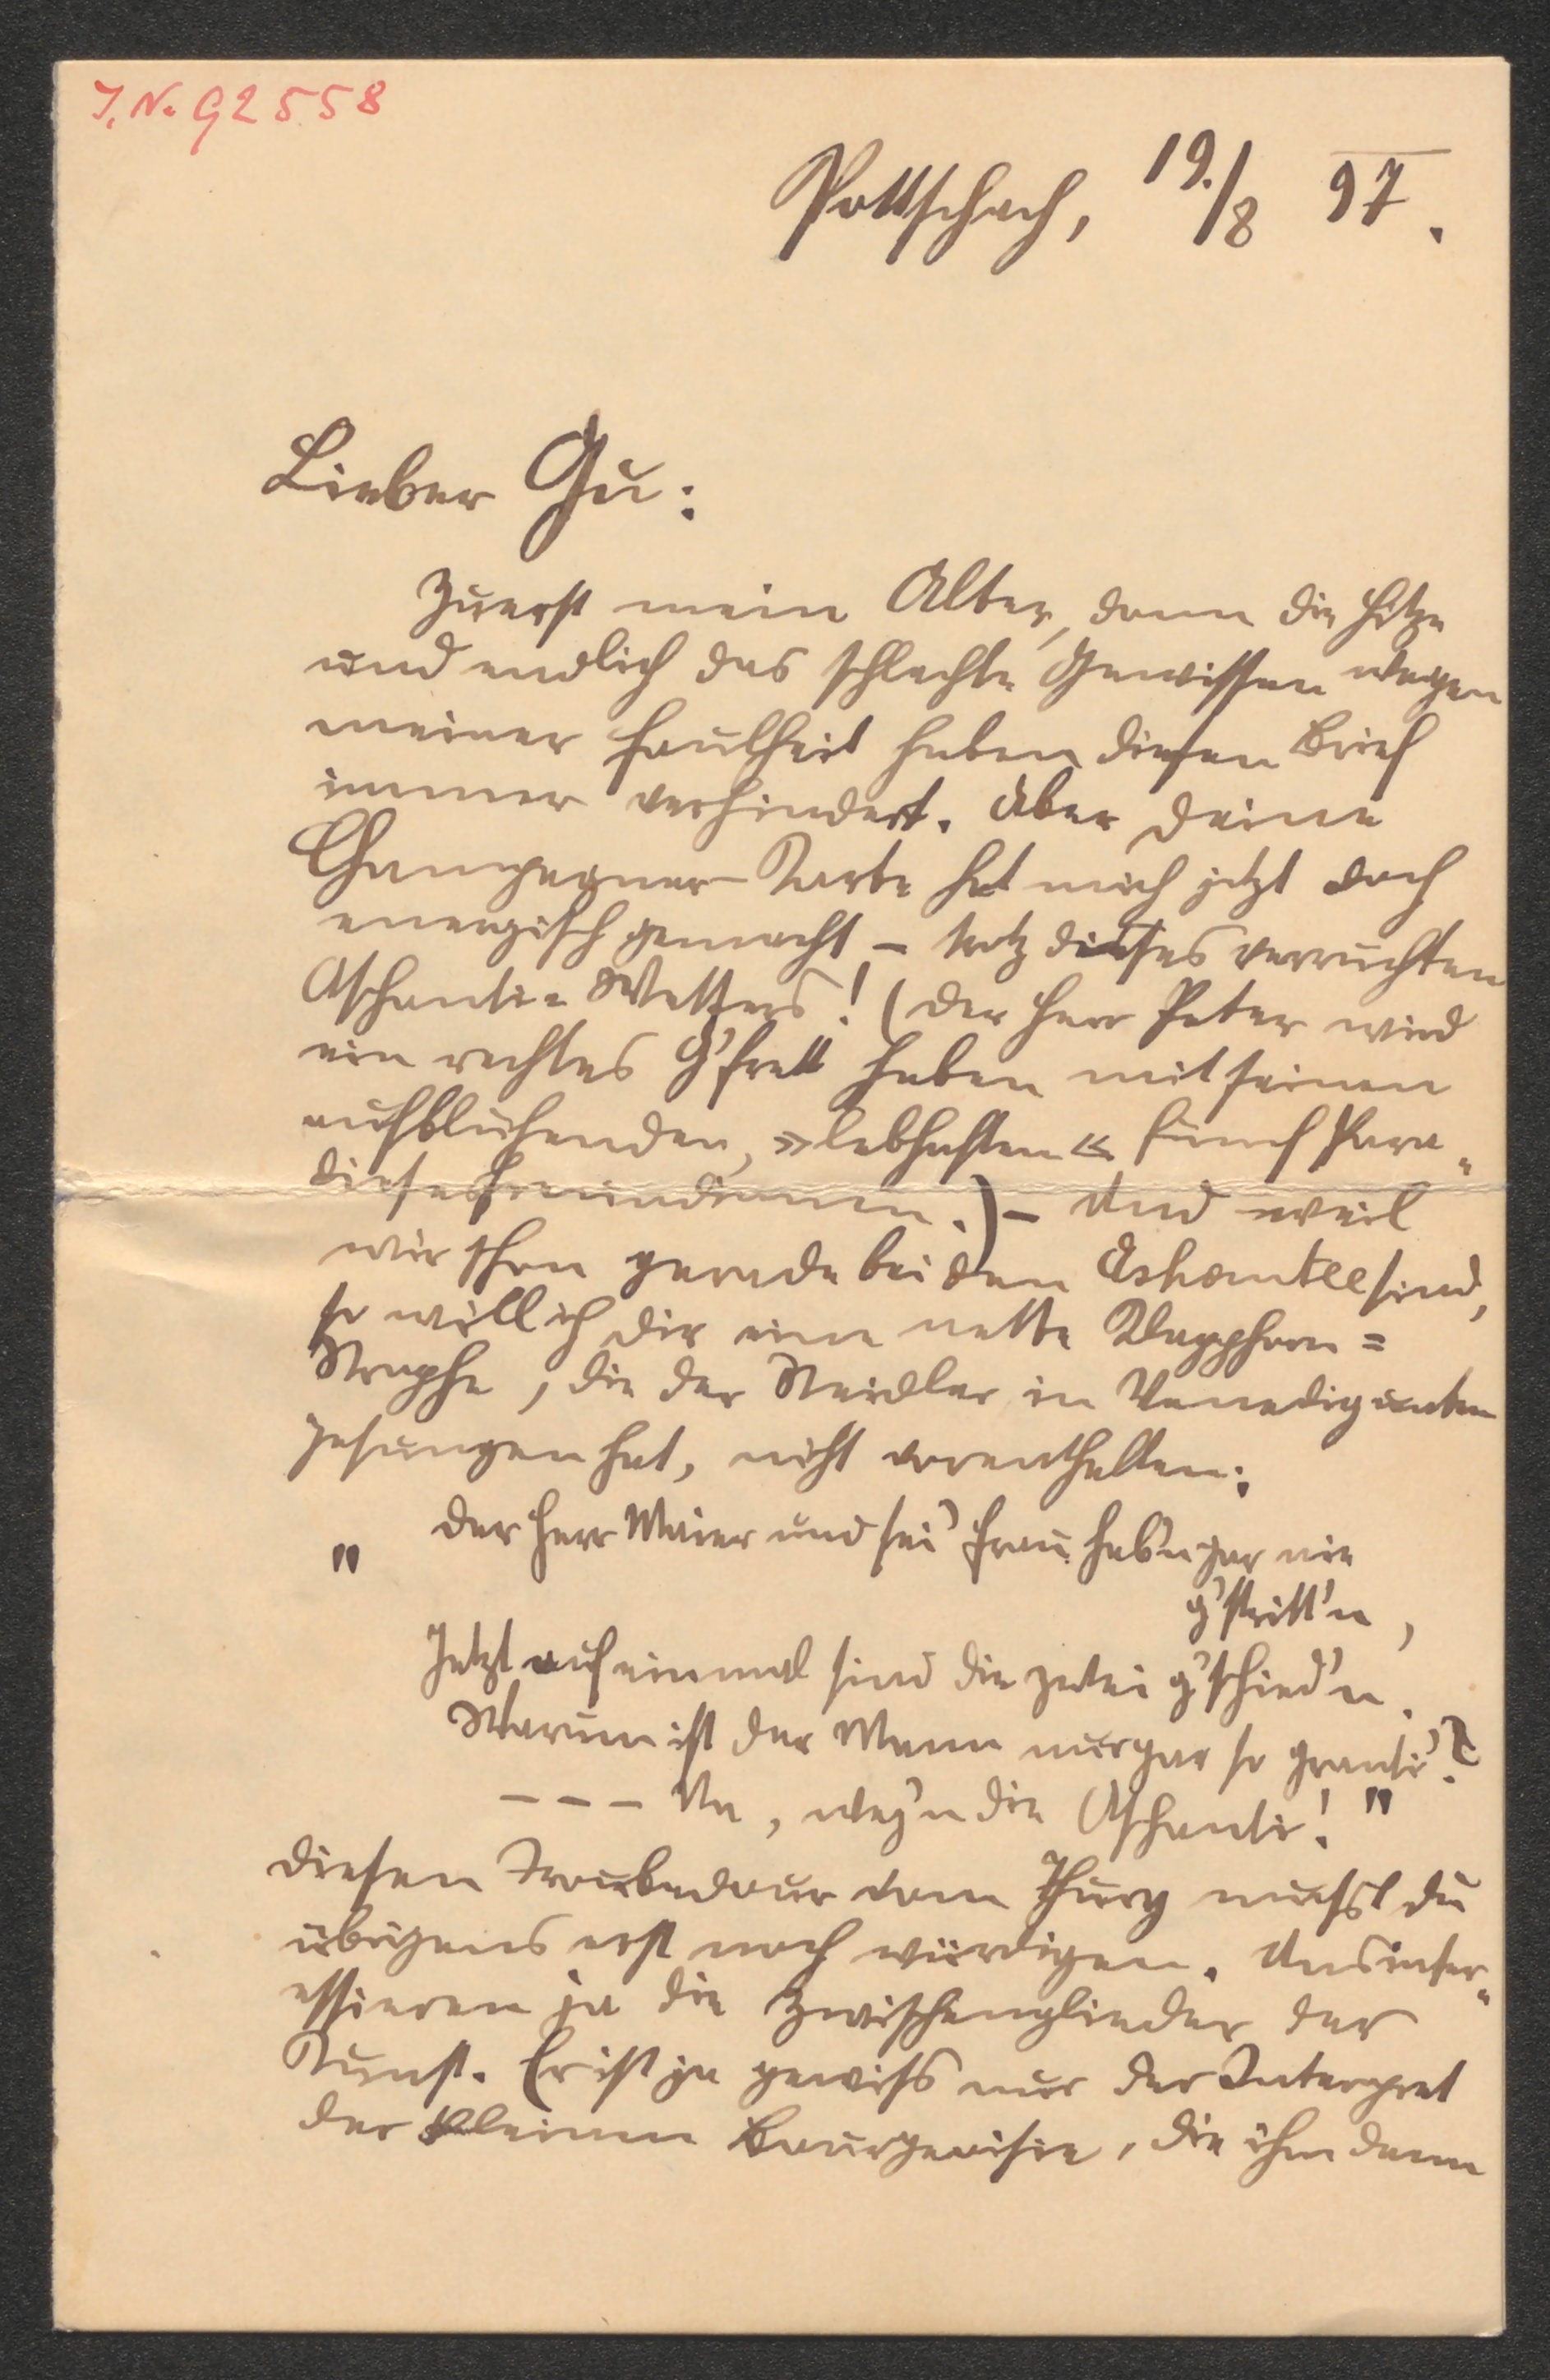 I. N. 92558
Pottschach, 19./8 97.
Lieber Gu:
Zuerst mein Alter, dann die Hitze
und endlich das schlechte Gewissen wegen
meiner Faulheit haben diesen Brief
immer verhindert. Aber Deine
Champagner-Karte hat mich jetzt doch
energisch gemacht – trotz dieses verruchten
Aschanti-Wetters! (Der Herr Peter wird
ein rechtes G'frett haben mit seinen
aufblühenden, »lebhaften« fünf Para-
diesesfreundinnen.) – Und weil
wir schon gerade bei den Ashantee sind,
so will ich Dir eine nette Klapphorn=
Strophe, die der Steidler in Venedig unten
gesungen hat, nicht vorenthalten:
" Der Herr Maier und sei' Frau hab'n gar nie
g'stritt'n,
Jetzt auf einmal sind die zwei g'schied'n.
Warum ist der Mann nur gar so granti'?
– – – Na, weg'n die Aschanti! "
Diesen Troubadour vom Thury musst Du
übrigens erst noch würdigen. Uns inter-
essieren ja die Zwischenglieder der
Kunst. Er ist ja gewiss nur der Interpret
der kleinen Bourgeoisie, die ihm dann